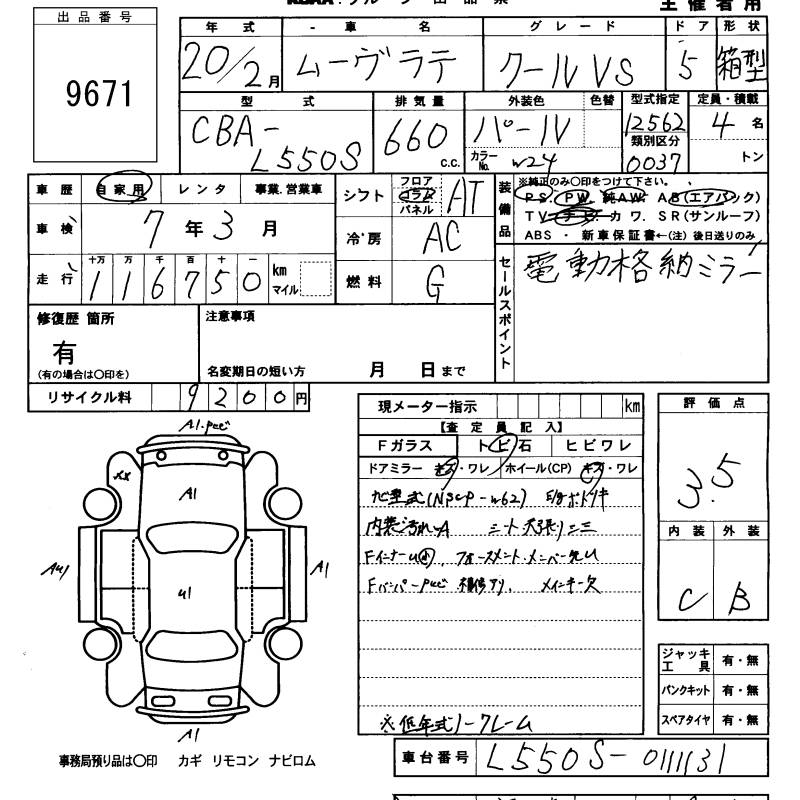 出品番号
9671
主催者用
年式 車名 グレード ドア 形状
20/2月 ムーヴラテ クールVS 5 箱型
型式 排気量 外装色 色替 型式指定 定員・積載
CBA-L550S 660 c.c. パール 12562 4名
カラーNo. W24 類別区分 0037 トン
車歴 自家用 レンタ 事業.営業車
シフト フロア コラム パネル AT
車検 7年3月
冷房 AC
走行 十万 万 千 百 十 一
116750 km マイル
燃料 G
装備品
※純正のみ〇印をつけて下さい。
PS. PW. 純AW. AB(エアバック)
TV カワ. SR(サンルーフ)
ABS ・ 新車保証書←(注)後日送りのみ
セールスポイント
電動格納ミラー
修復歴 箇所
有
(有の場合は〇印を)
注意事項
名変期日の短い方 月 日まで
リサイクル料 9200円
現メーター指示 km
【査定員記入】
Fガラス トビ石 ヒビワレ
ドアミラー キズ・ワレ ホイール(CP) キズ・ワレ
内装汚れA
メインキー欠
※低年式ノークレーム
評価点
3.5
内装 外装
C B
ジャッキ工具 有・無
パンクキット 有・無
スペアタイヤ 有・無
A1
XX
A1
AU1
A1
U1
A1
事務局預り品は〇印 カギ リモコン ナビロム
車台番号 L550S-0111131